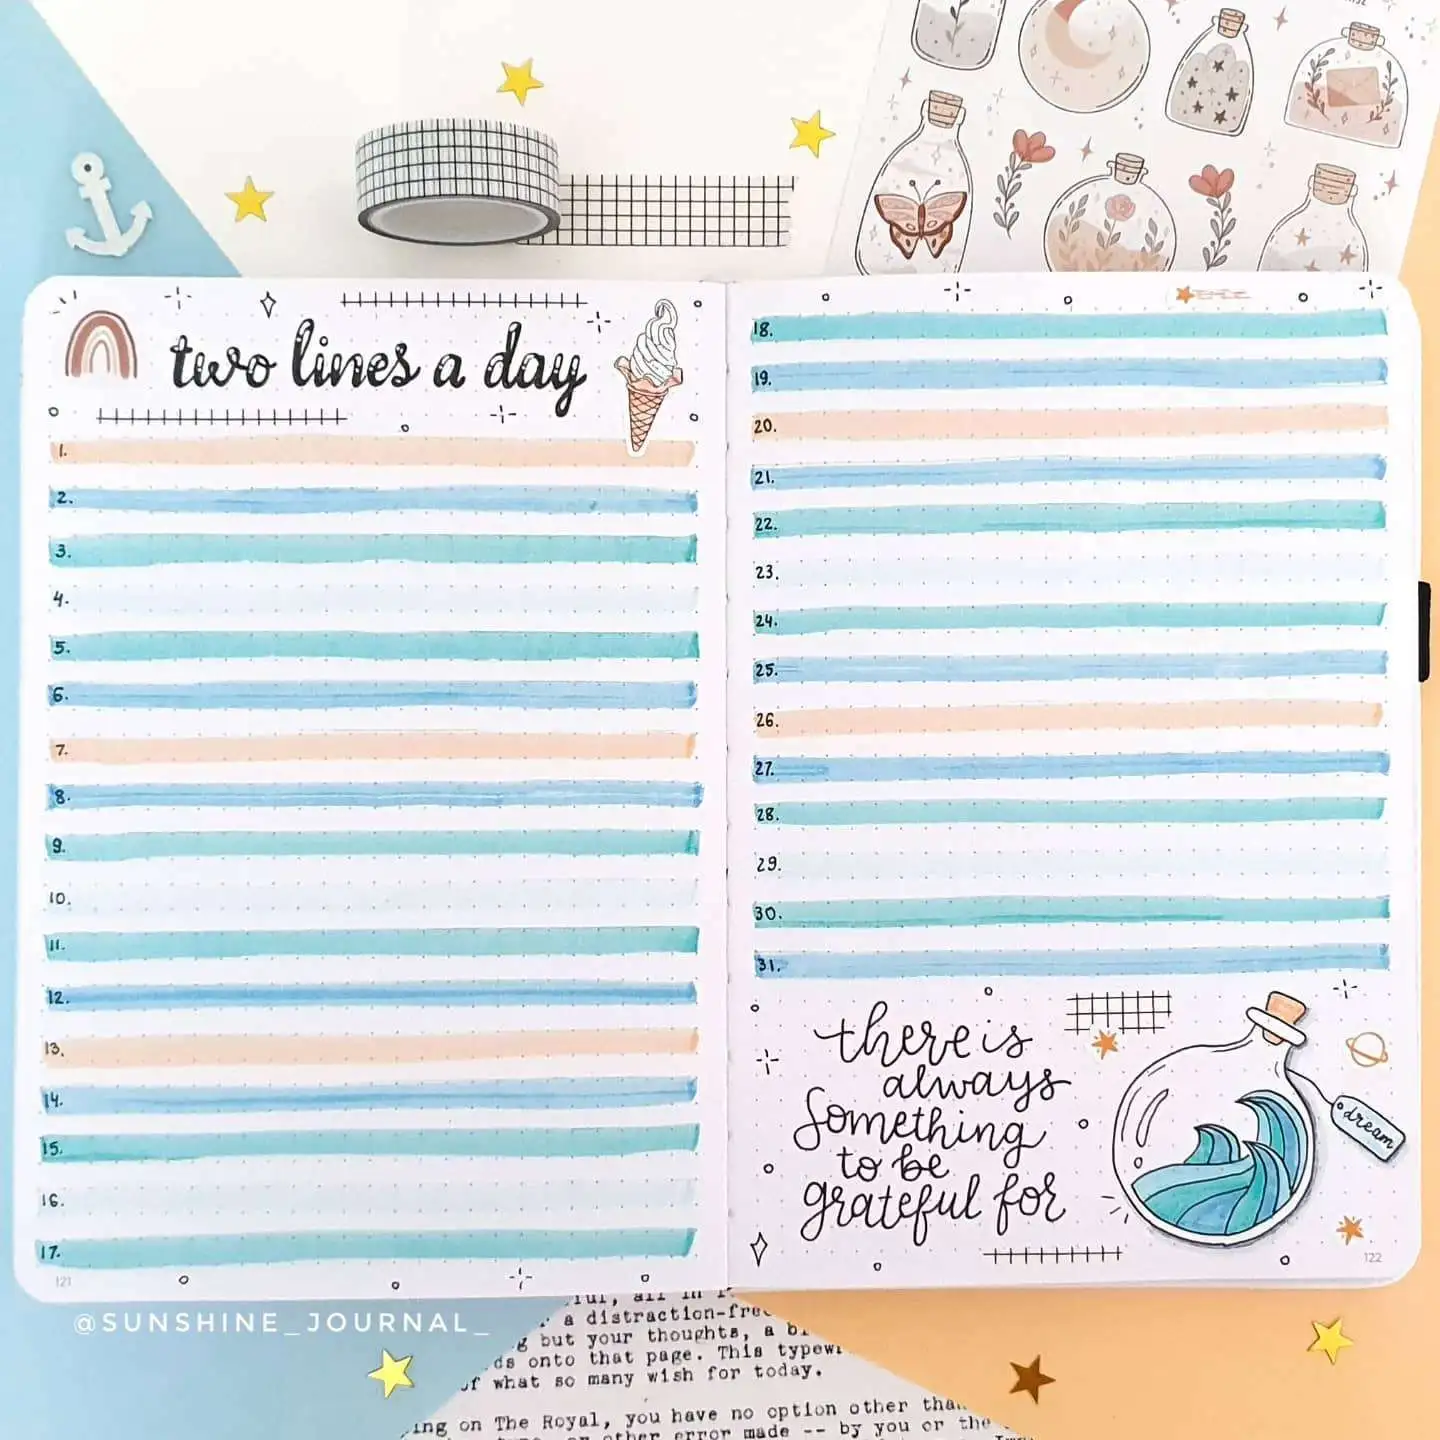 two lines a day
1.
2.
3.
4.
5.
6.
7.
8.
9.
10.
11.
12.
13.
14.
15.
16.
17.
121
18.
19.
20.
21.
22.
23.
24.
25.
26.
27.
28.
29.
30.
31.
there is
always
Something
to be
grateful for
dream
122
@SUNSHINE_JOURNAL_
all in
a distraction-free
but your thoughts, a
onto that page. This
of what so many wish for today.
on The Royal, you have no option other
other error made -- by you or the